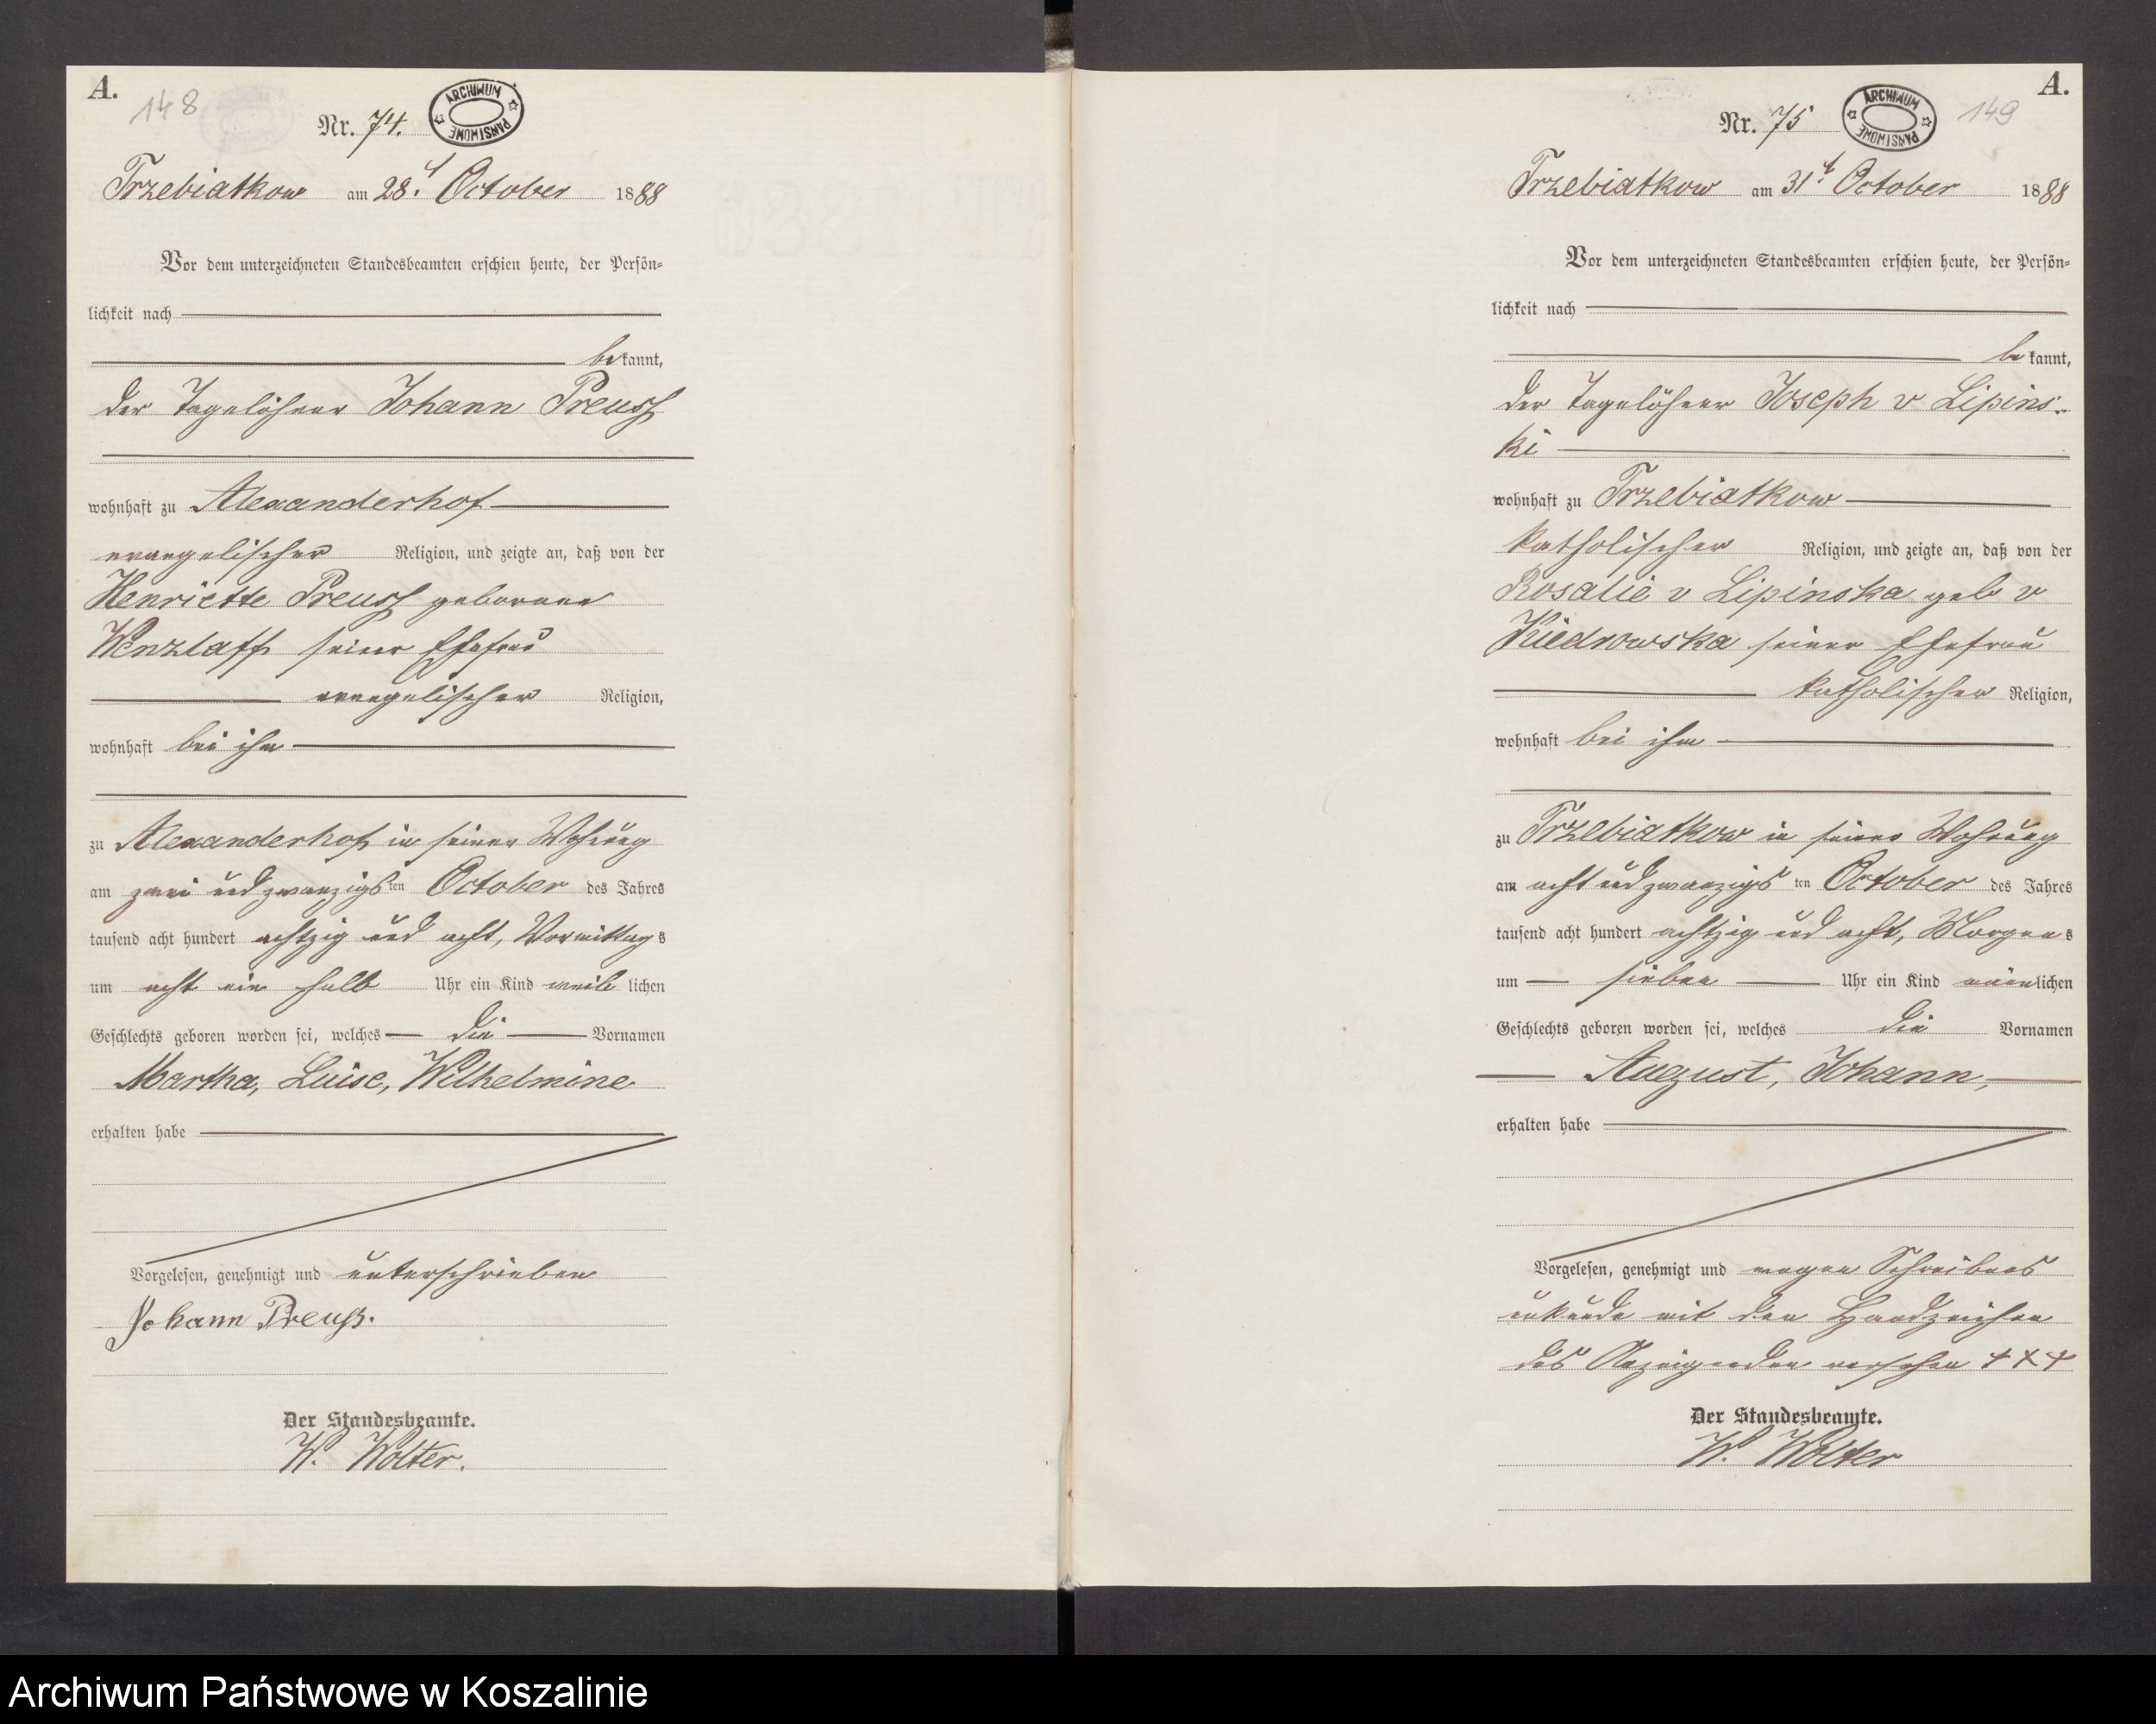 A.
148
Nr. 74.
ARCHIWUM PAŃSTWOWE
Trzebiatkow am 28.t October 1888
Vor dem unterzeichneten Standesbeamten erschien heute, der Persön-
lichkeit nach
bekannt,
der Tagelöhner Johann Preuß
wohnhaft zu Alexanderhof
evangelischer Religion, und zeigte an, daß von der
Henriette Preuß geborene
Wenzlaff seiner Ehefrau
evangelischer Religion,
wohnhaft bei ihm
zu Alexanderhof in seiner Wohnung
am zwei und zwanzigsten October des Jahres
tausend acht hundert achtzig und acht, Vormittags
um acht ein halb Uhr ein Kind weiblichen
Geschlechts geboren worden sei, welches die Vornamen
Martha, Luise, Wilhelmine
erhalten habe
Vorgelesen, genehmigt und unterschrieben
Johann Preuß.
Der Standesbeamte.
W. Wolter.
A.
149
Nr. 75
ARCHIWUM PAŃSTWOWE
Trzebiatkow am 31t October 1888
Vor dem unterzeichneten Standesbeamten erschien heute, der Persön-
lichkeit nach
bekannt,
der Tagelöhner Joseph v Lipins-
ki
wohnhaft zu Trzebiatkow
katholischer Religion, und zeigte an, daß von der
Rosalie v Lipinska geb v
Kiedrowska seiner Ehefrau
katholischer Religion,
wohnhaft bei ihm
zu Trzebiatkow in seiner Wohnung
am acht und zwanzigsten October des Jahres
tausend acht hundert achtzig und acht, Morgens
um sieben Uhr ein Kind männlichen
Geschlechts geboren worden sei, welches die Vornamen
August, Johann,
erhalten habe
Vorgelesen, genehmigt und wegen Schreibens
unkunde mit den Handzeichen
des Anzeigenden versehen + + +
Der Standesbeamte.
W. Wolter
Archiwum Państwowe w Koszalinie